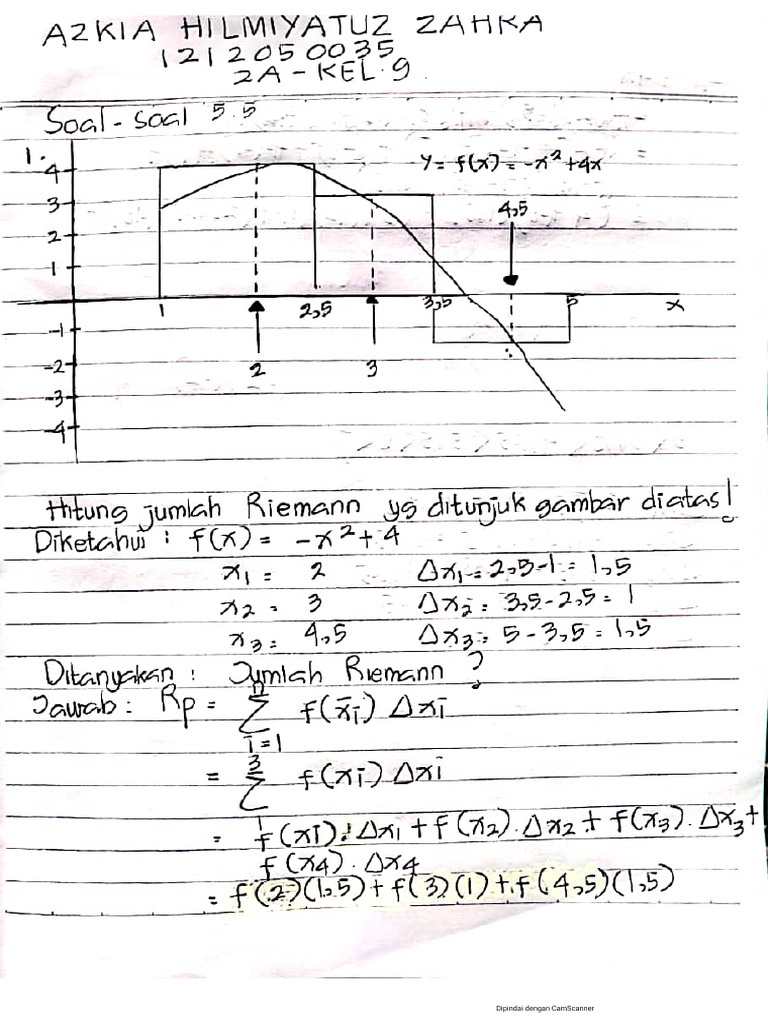 AZKIA HILMIYATUZ ZAHRA
1212050035
2A - KEL. 9
Soal-soal 5.5
1.
y = f(x) = -x² + 4x
4
3
2
1
-1
-2
-3
-4
4,5
1 2,5 3,5 5 x
2 3
Hitung jumlah Riemann yg ditunjuk gambar diatas!
Diketahui : f(x) = -x² + 4
x₁ = 2 Δx₁ = 2,5-1 = 1,5
x₂ = 3 Δx₂ = 3,5-2,5 = 1
x₃ = 4,5 Δx₃ = 5-3,5 = 1,5
Ditanyakan : Jumlah Riemann ?
Jawab : Rp = n Σ i=1 f(x̄i) Δxi
= 3 Σ 1 f(xi) Δxi
= f(xi) . Δx₁ + f(x₂) . Δx₂ + f(x₃) . Δx₃ +
f(x₄) . Δx₄
= f(2)(1,5) + f(3)(1) + f(4,5)(1,5)
Dipindai dengan CamScanner